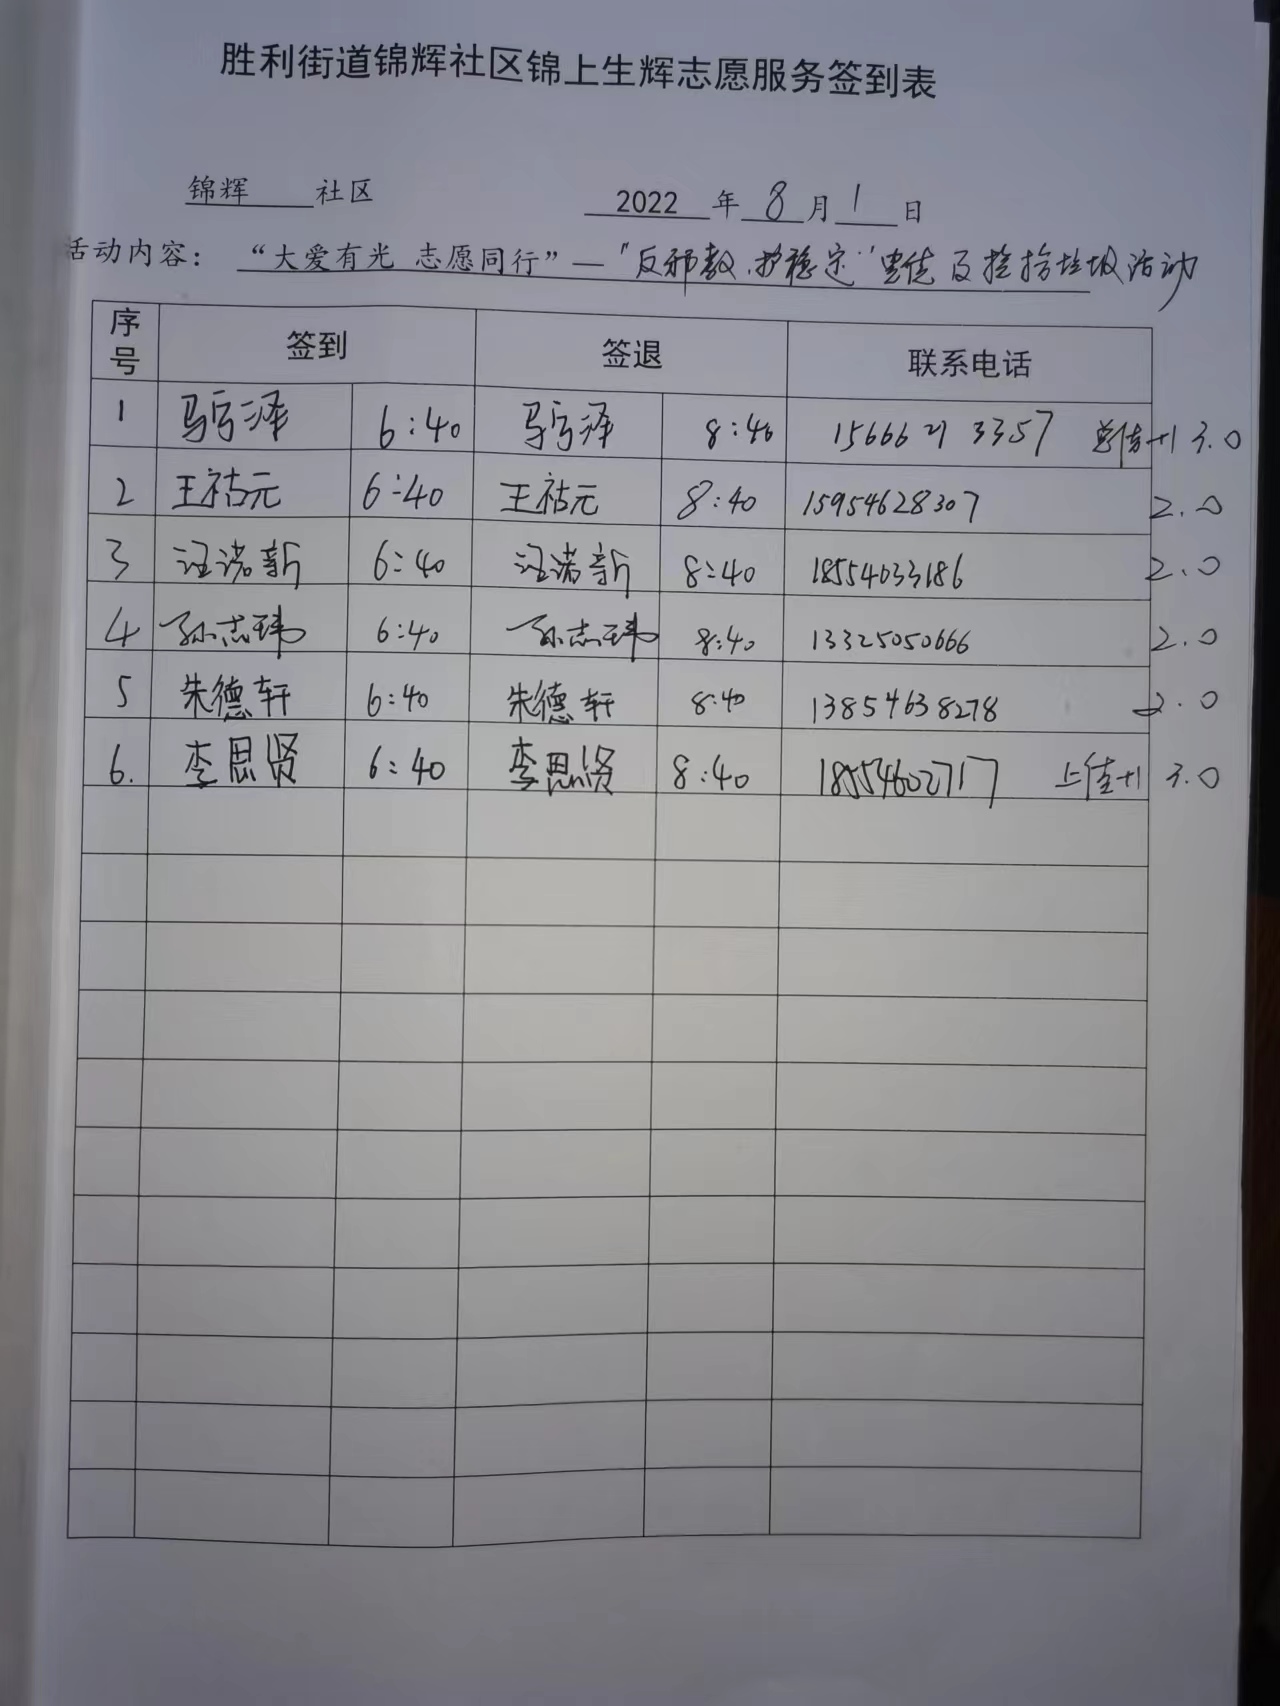 胜利街道锦辉社区锦上生辉志愿服务签到表
锦辉 社区 2022 年 8 月 1 日
活动内容： “大爱有光 志愿同行”—“反邪教、护稳定”宣传及捡拾垃圾活动
序号 签到 签退 联系电话
1 6:40 8:40 15666213357 +1 3.0
2 王祜元 6:40 王祜元 8:40 15954628307 2.0
3 汪诺新 6:40 汪诺新 8:40 18554033186 2.0
4 孙志玮 6:40 孙志玮 8:40 13325050666 2.0
5 朱德轩 6:40 朱德轩 8:40 13854638278 2.0
6. 李思贤 6:40 李思贤 8:40 18554602717 上传+1 3.0